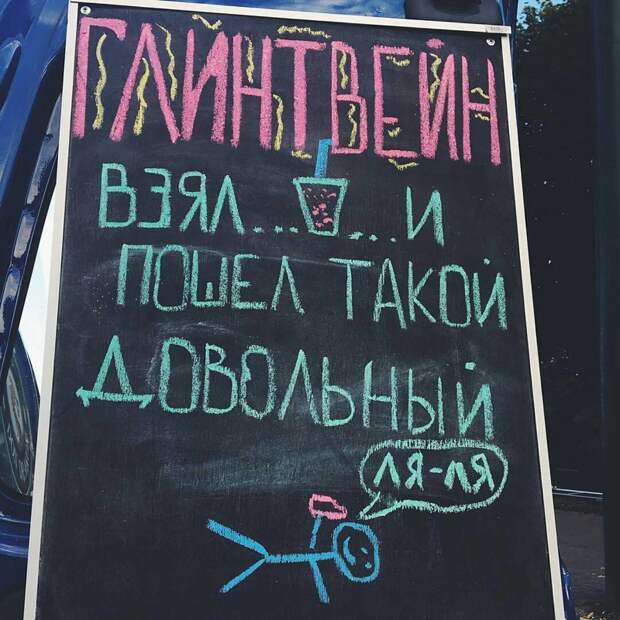 ГЛИНТВЕЙН
ВЗЯЛ... ...И
ПОШЕЛ ТАКОЙ
ДОВОЛЬНЫЙ
ЛЯ-ЛЯ